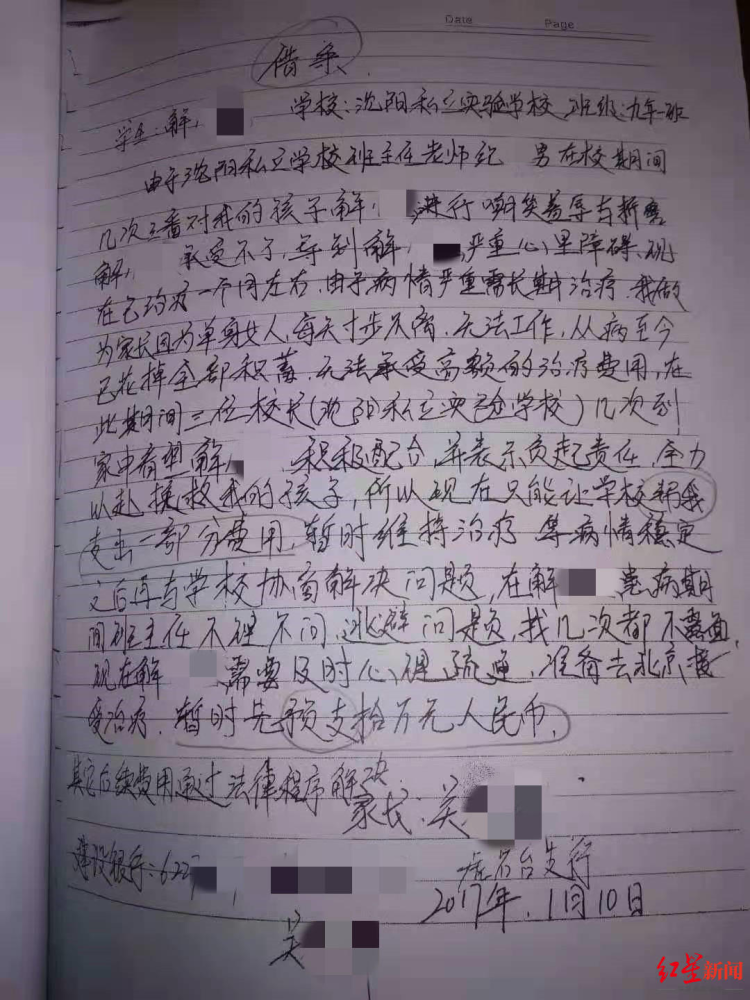 Date Page
借条
学生:解, 学校:沈阳私立实验学校 班级:九年一班
由于沈阳私立学校班主任老师纪 男在校期间
几次三番对我的孩子解, 进行嘲笑羞辱与折磨
解, 承受不了,导到解, 严重心里障碍,现
在已治疗一个月左右,由于病情严重需长期治疗,我做
为家长因为单身女人,每天寸步不离,无法工作,从病至今
已花掉全部积蓄,无法承受高额的治疗费用,在
此期间三位校长(沈阳私立实验学校)几次到
家中看望解, 积极配合,并表示负起责任,全力
以赴挽救我的孩子,所以现在只能让学校帮我
支出一部分费用,暂时维持治疗 等病情稳定
之后再与学校协商解决问题,在解 患病期
间班主任不理不问,逃避问题,找几次都不露面,
现在解 需要及时心理疏通,准备去北京接
受治疗,暂时先预支拾万元人民币,
其它后续费用通过法律程序解决
家长:关
建设银行:622 台支行
2017年,1月10日
关
红星新闻